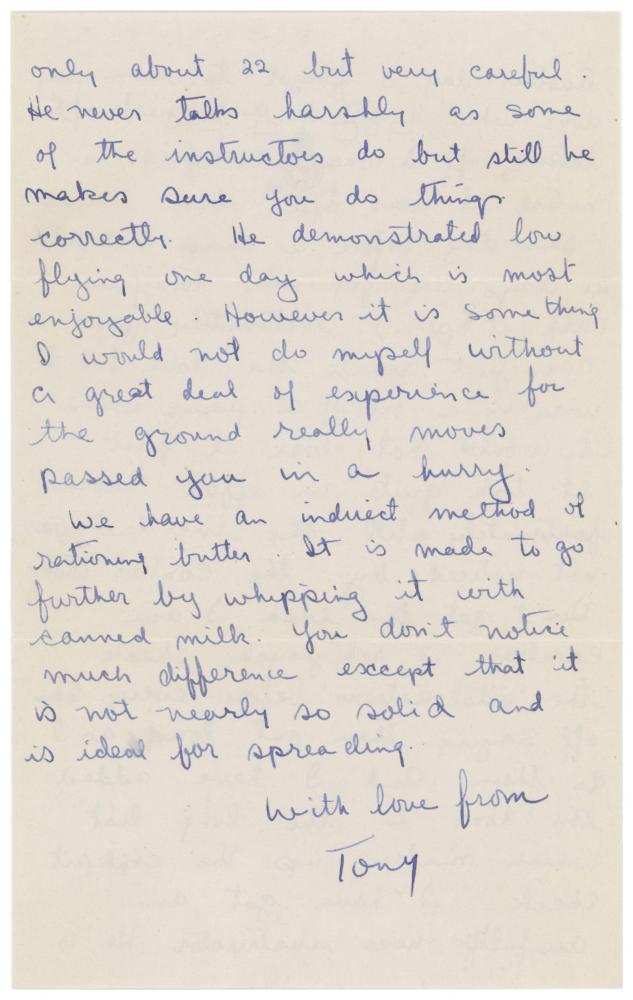 only about 22 but very careful.
He never talks harshly as some
of the instructors do but still he
makes sure you do things
correctly. He demonstrated low
flying one day which is most
enjoyable. However it is something
I would not do myself without
a great deal of experience for
the ground really moves
passed you in a hurry.
We have an indirect method of
rationing butter. It is made to go
further by whipping it with
canned milk. You don't notice
much difference except that it
is not nearly so solid and
is ideal for spreading.
With love from
Tony